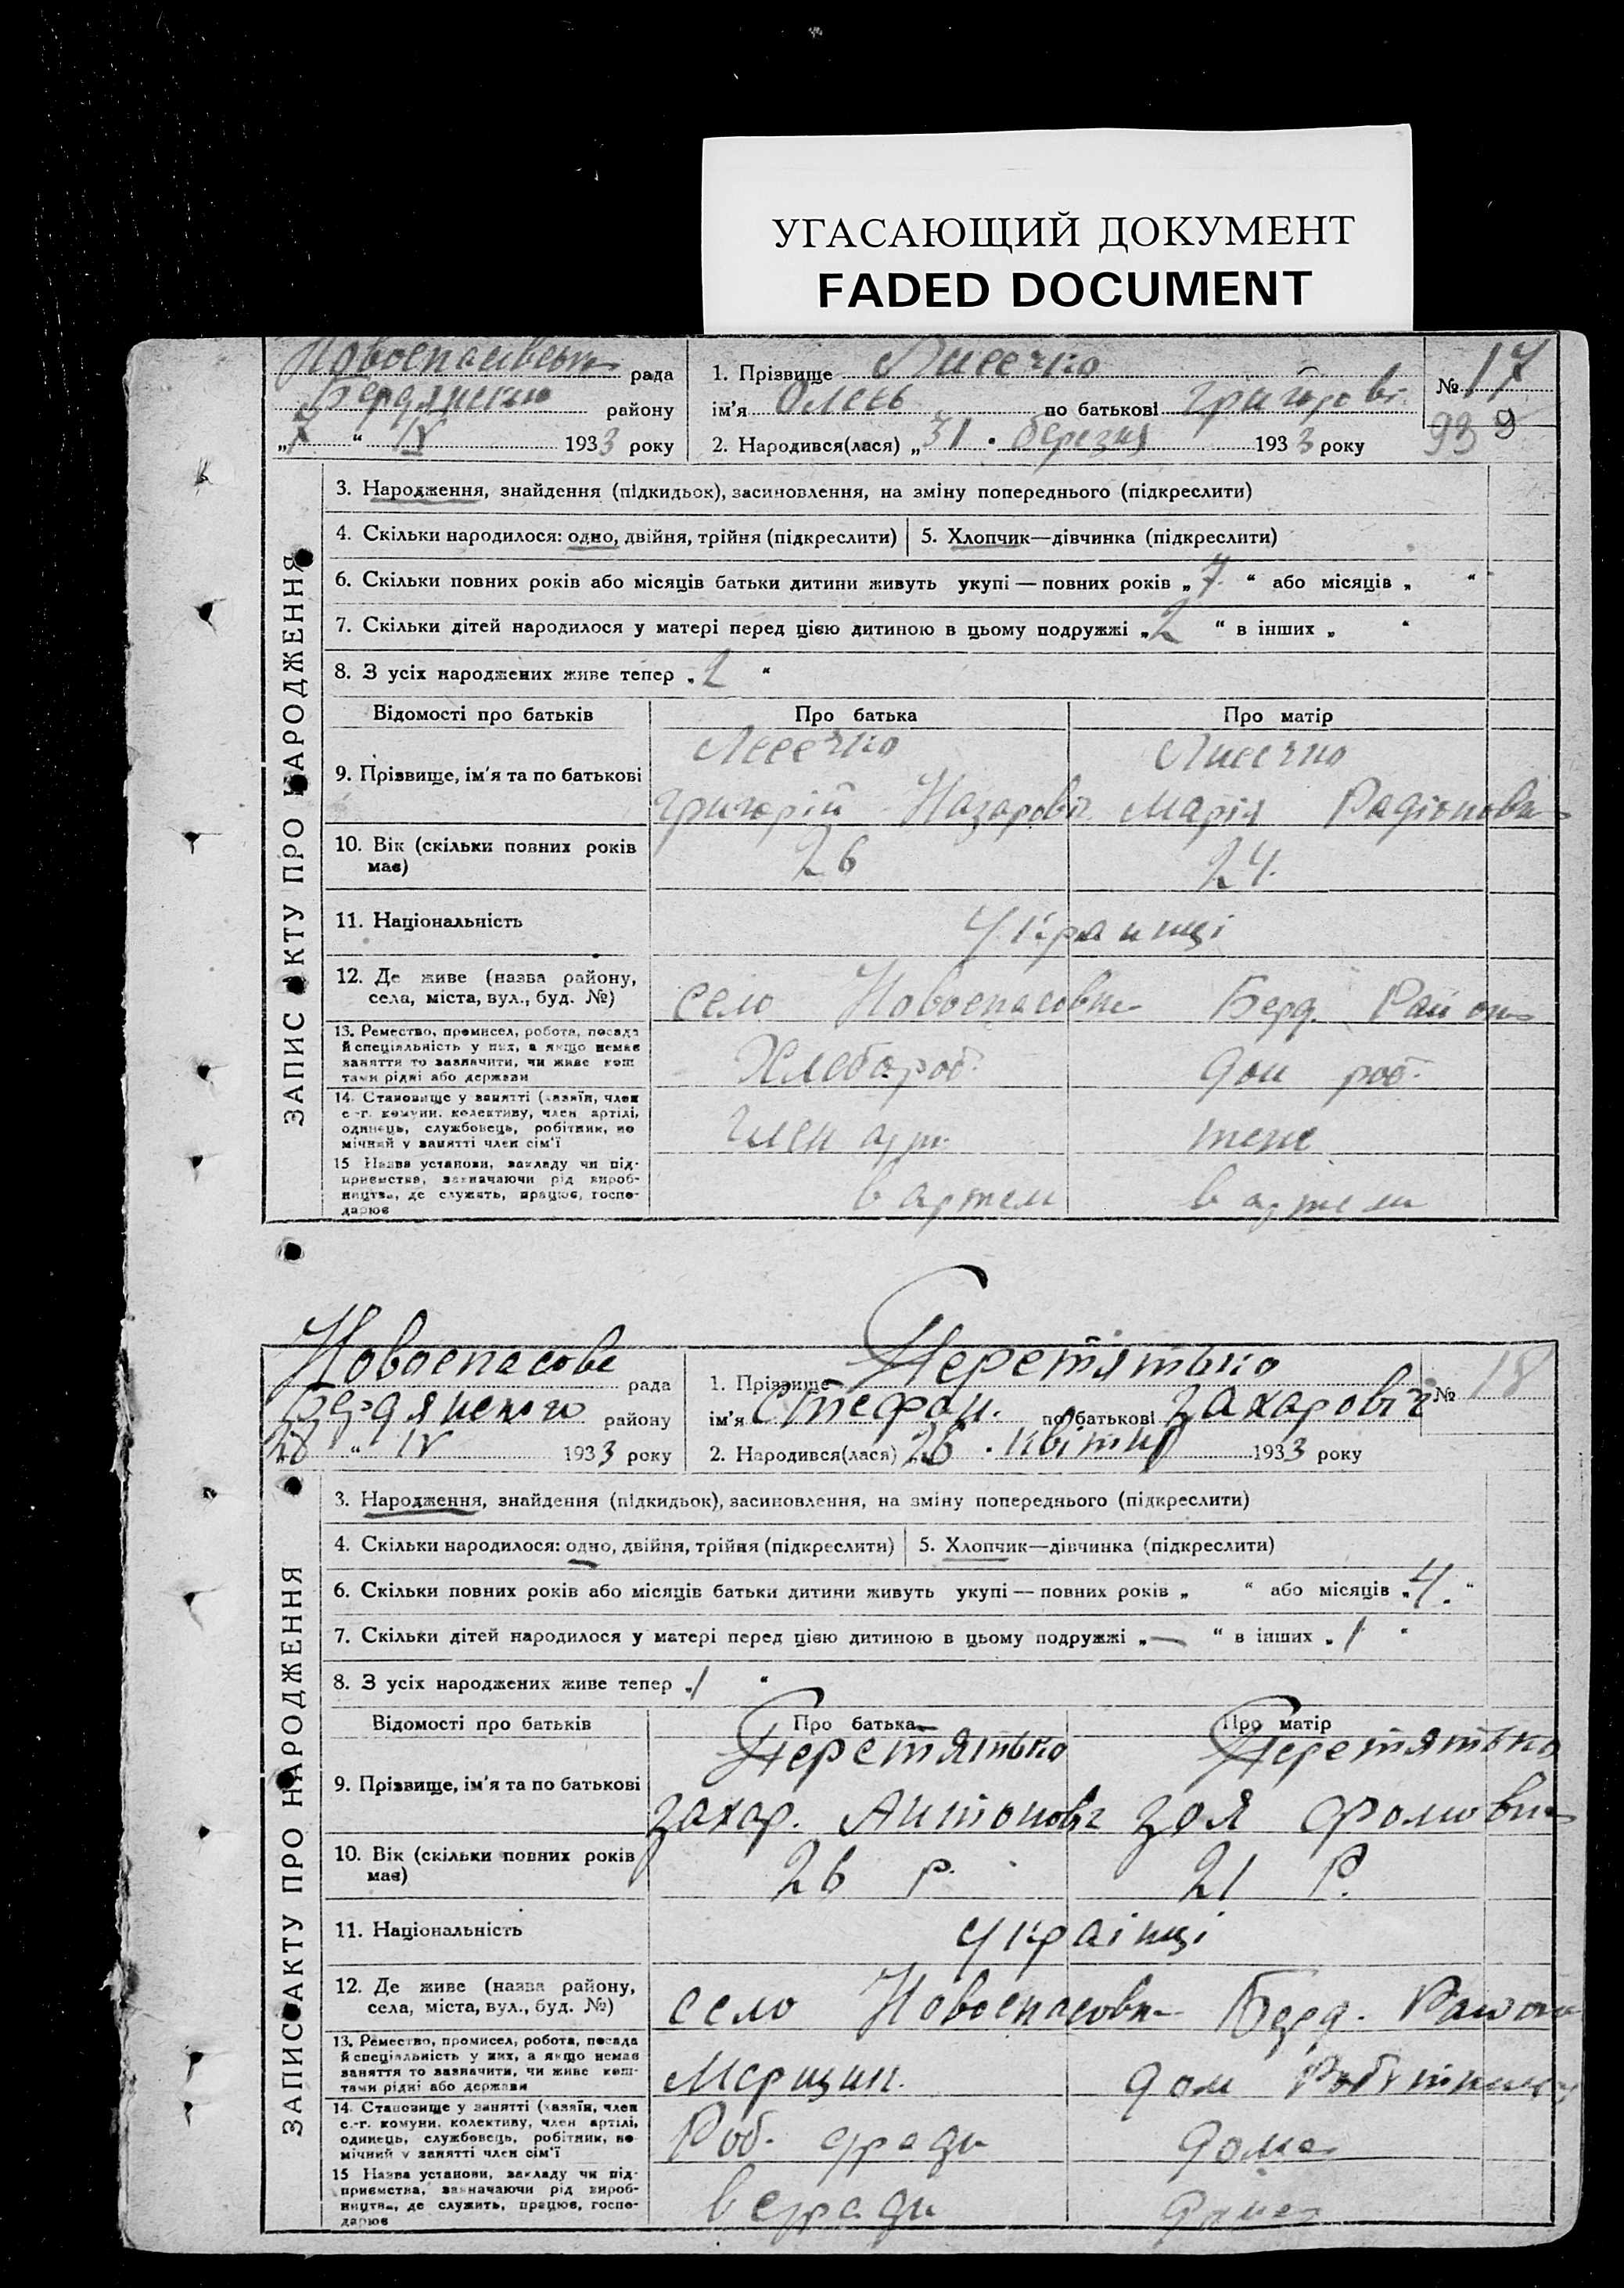 УГАСАЮЩИЙ ДОКУМЕНТ
FADED DOCUMENT
ЗАПИС АКТУ ПРО НАРОДЖЕННЯ
рада
Бердянского району
„7“ IV 1933 року
1. Прізвище Лисечко
ім'я Олесь по батькові Григорові
2. Народився(лася) „31 • березня 1933 року
№ 17
93 9
3. Народження, знайдення (підкидьок), засиновлення, на зміну попереднього (підкреслити)
4. Скільки народилося: одно, двійня, трійня (підкреслити)
5. Хлопчик—дівчинка (підкреслити)
6. Скільки повних років або місяців батьки дитини живуть укупі — повних років „7“ або місяців „ “
7. Скільки дітей народилося у матері перед цією дитиною в цьому подружжі „2 “ в інших „ “
8. З усіх народжених живе тепер „2 “
Відомості про батьків
Про батька
Про матір
9. Прізвище, ім'я та по батькові
Лисечко
Григорій Назарович
Лисечко
Марія Радіоновн
10. Вік (скільки повних років має)
26
24.
11. Національність
Украинці
12. Де живе (назва району, села, міста, вул., буд. №)
село Новоспасовк Берд. Район
13. Ремество, промисел, робота, посада
й спеціяльність у них, а якщо немає
заняття то зазначити, чи живе кош-
тами рідні або держави
Хлебороб.
дом роб.
14. Становище у занятті (хазяїн, член
с.-г. комуни, колективу, член артілі,
одинець, службовець, робітник, по-
мічний у занятті член сім'ї
член арт.
теже
15 Назва установи, закладу чи під-
приємства, зазначаючи рід вироб-
ництва, де служить, працює, госпо-
дарює
в артели
в артели
ЗАПИС АКТУ ПРО НАРОДЖЕННЯ
Новоспасове рада
Бердянского району
28 “ IV 1933 року
1. Прізвище Перетятько
ім'я Стефан. по батькові Захарович
2. Народився(лася) „26 • квітня 1933 року
№ 18
3. Народження, знайдення (підкидьок), засиновлення, на зміну попереднього (підкреслити)
4. Скільки народилося: одно, двійня, трійня (підкреслити)
5. Хлопчик—дівчинка (підкреслити)
6. Скільки повних років або місяців батьки дитини живуть укупі — повних років „ “ або місяців „4.“
7. Скільки дітей народилося у матері перед цією дитиною в цьому подружжі „— “ в інших „1 “
8. З усіх народжених живе тепер „1 “
Відомості про батьків
Про батька
Про матір
9. Прізвище, ім'я та по батькові
Перетятько
Захар. Антонович
Перетятько
Зоя Фомовн
10. Вік (скільки повних років має)
26 р.
21 р.
11. Національність
Українці
12. Де живе (назва району, села, міста, вул., буд. №)
село Новоспасовк Берд. Район
13. Ремество, промисел, робота, посада
й спеціяльність у них, а якщо немає
заняття то зазначити, чи живе кош-
тами рідні або держави
дом
14. Становище у занятті (хазяїн, член
с.-г. комуни, колективу, член артілі,
одинець, службовець, робітник, по-
мічний у занятті член сім'ї
Роб.
дома
15 Назва установи, закладу чи під-
приємства, зазначаючи рід вироб-
ництва, де служить, працює, госпо-
дарює
дома